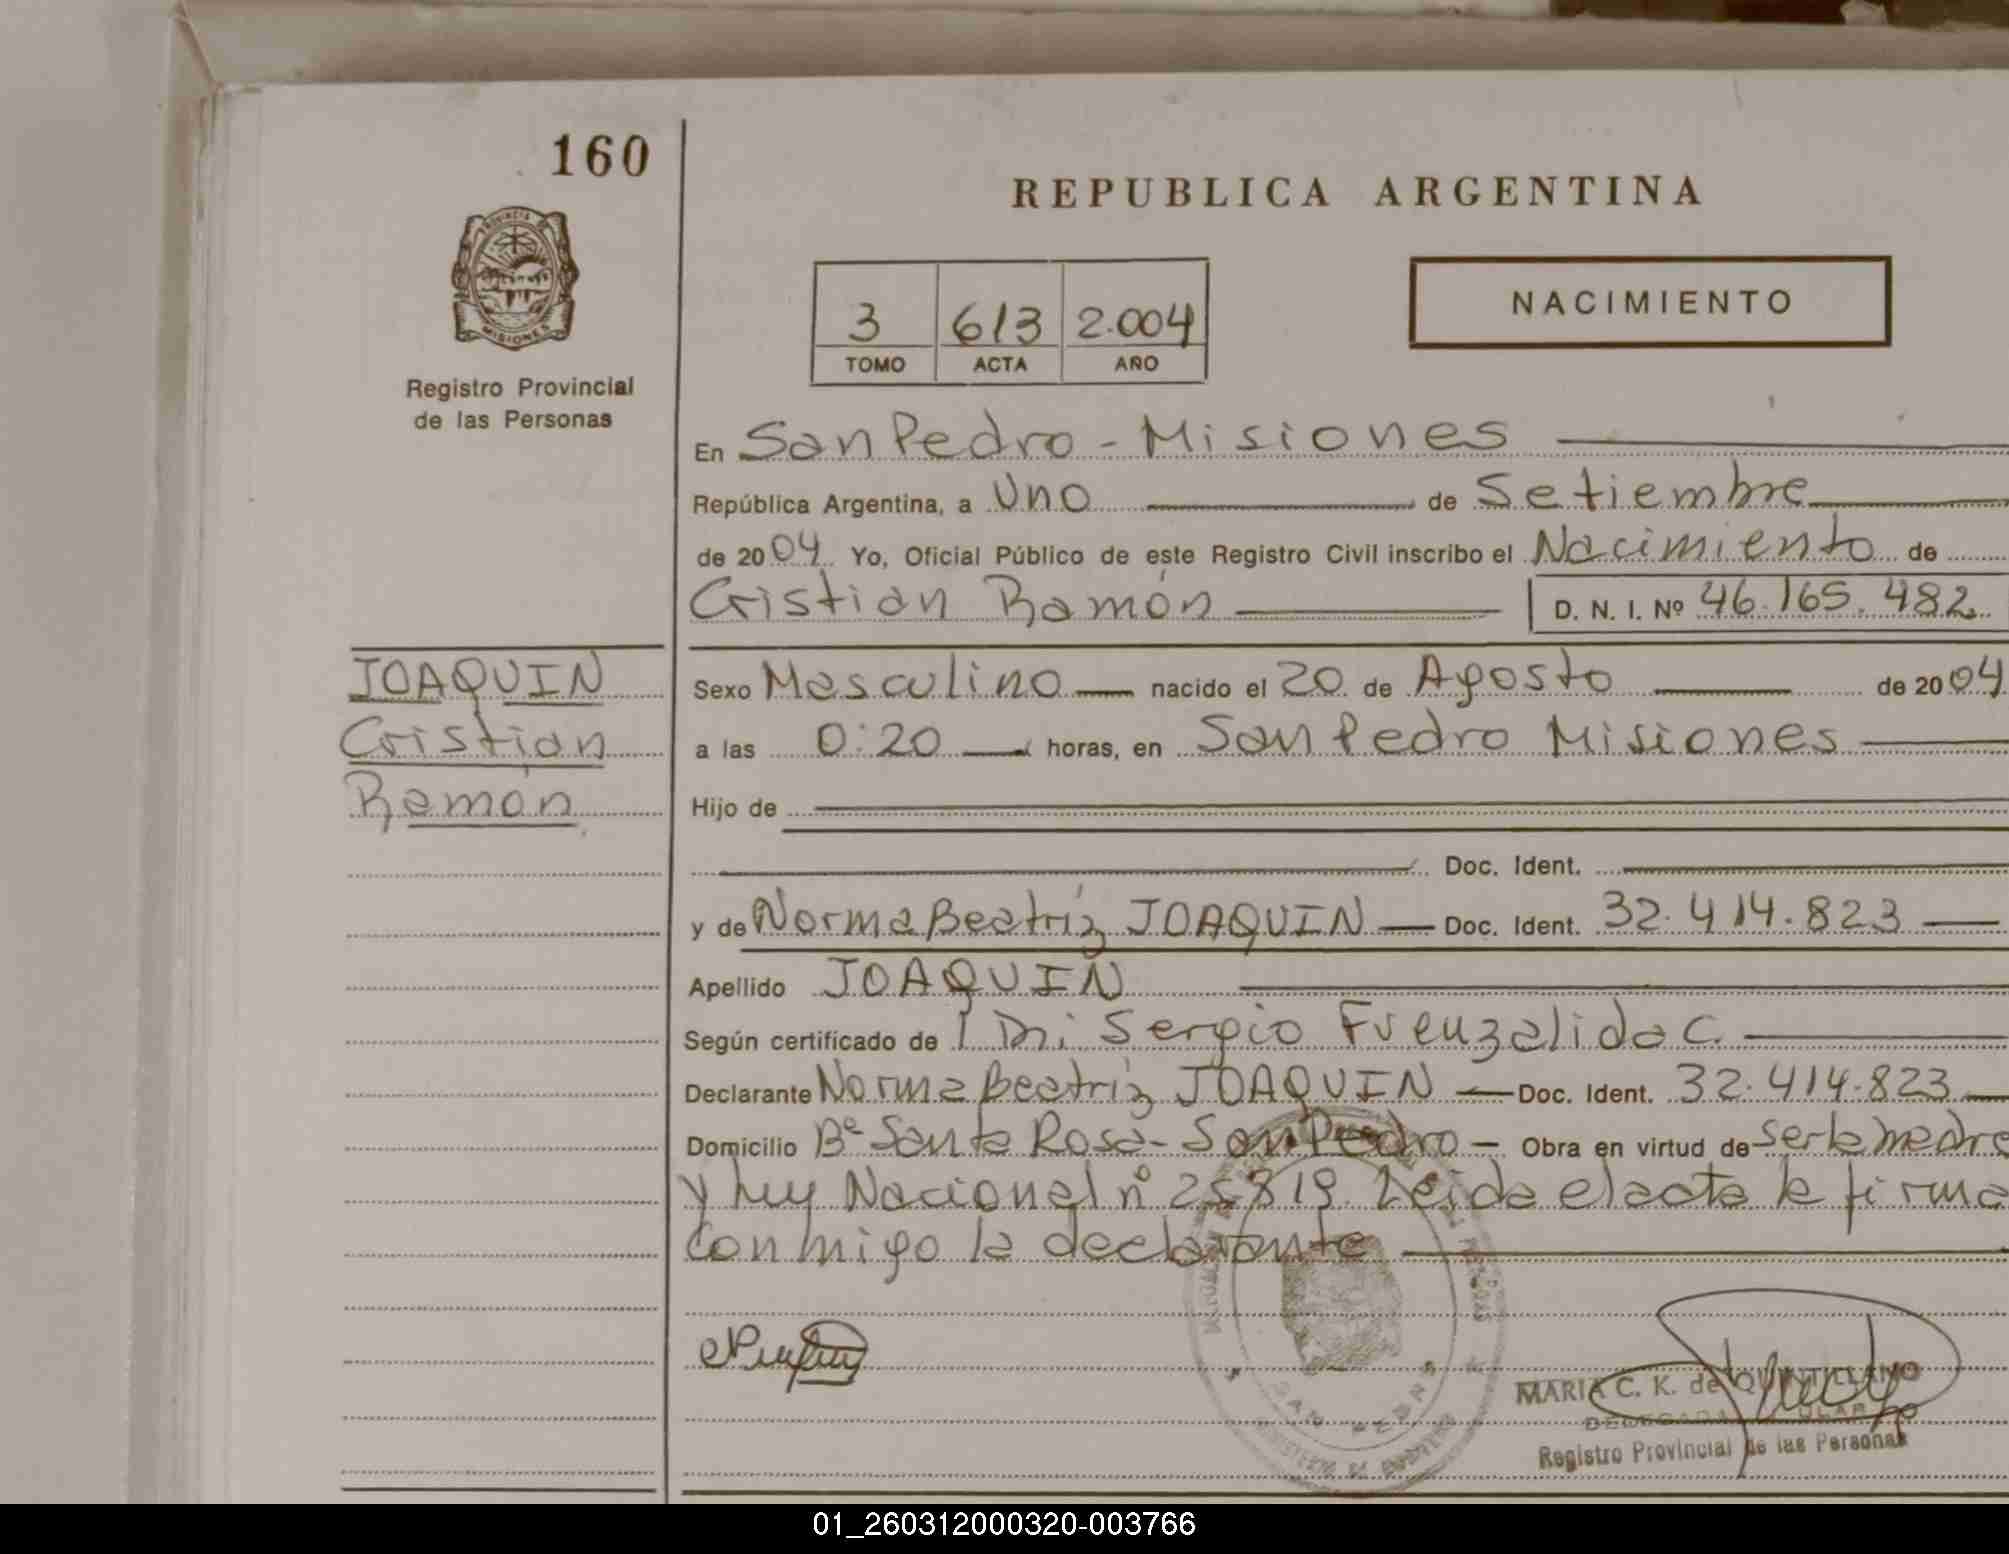 160
REPUBLICA ARGENTINA
PROVINCIA DE
MISIONES
Registro Provincial
de las Personas
3 613 2.004
TOMO ACTA AÑO
NACIMIENTO
En San Pedro - Misiones
República Argentina, a Uno de Setiembre
de 2004 Yo, Oficial Público de este Registro Civil inscribo el Nacimiento de
Cristian Ramón D. N. I. Nº 46.165.482
JOAQUIN
Cristian
Ramón
Sexo Masculino nacido el 20 de Agosto de 2004
a las 0:20 horas, en San Pedro Misiones
Hijo de
Doc. Ident.
y de Norma Beatriz JOAQUIN Doc. Ident. 32.414.823
Apellido JOAQUIN
Según certificado de Sergio Fuenzalida C.
Declarante Norma Beatriz JOAQUIN Doc. Ident. 32.414.823
Domicilio Bº Santa Rosa - San Pedro - Obra en virtud de ser la madre
y ley Nacional nº 25819. Leida el acta la firma
conmigo la declarante
SAN PEDRO
MARIA C. K. de QUINTILLANO
DELEGADA TITULAR
Registro Provincial de las Personas
01_260312000320-003766